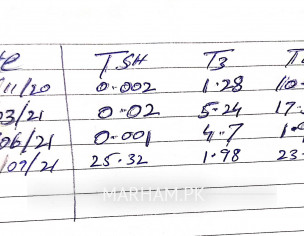 te TSH T3 T
/11/20 0.002 1.28 10.
03/21 0.02 5.24 17.
06/21 0.001 4.7 1.
/07/21 25.32 1.98 23.
MARHAM.PK